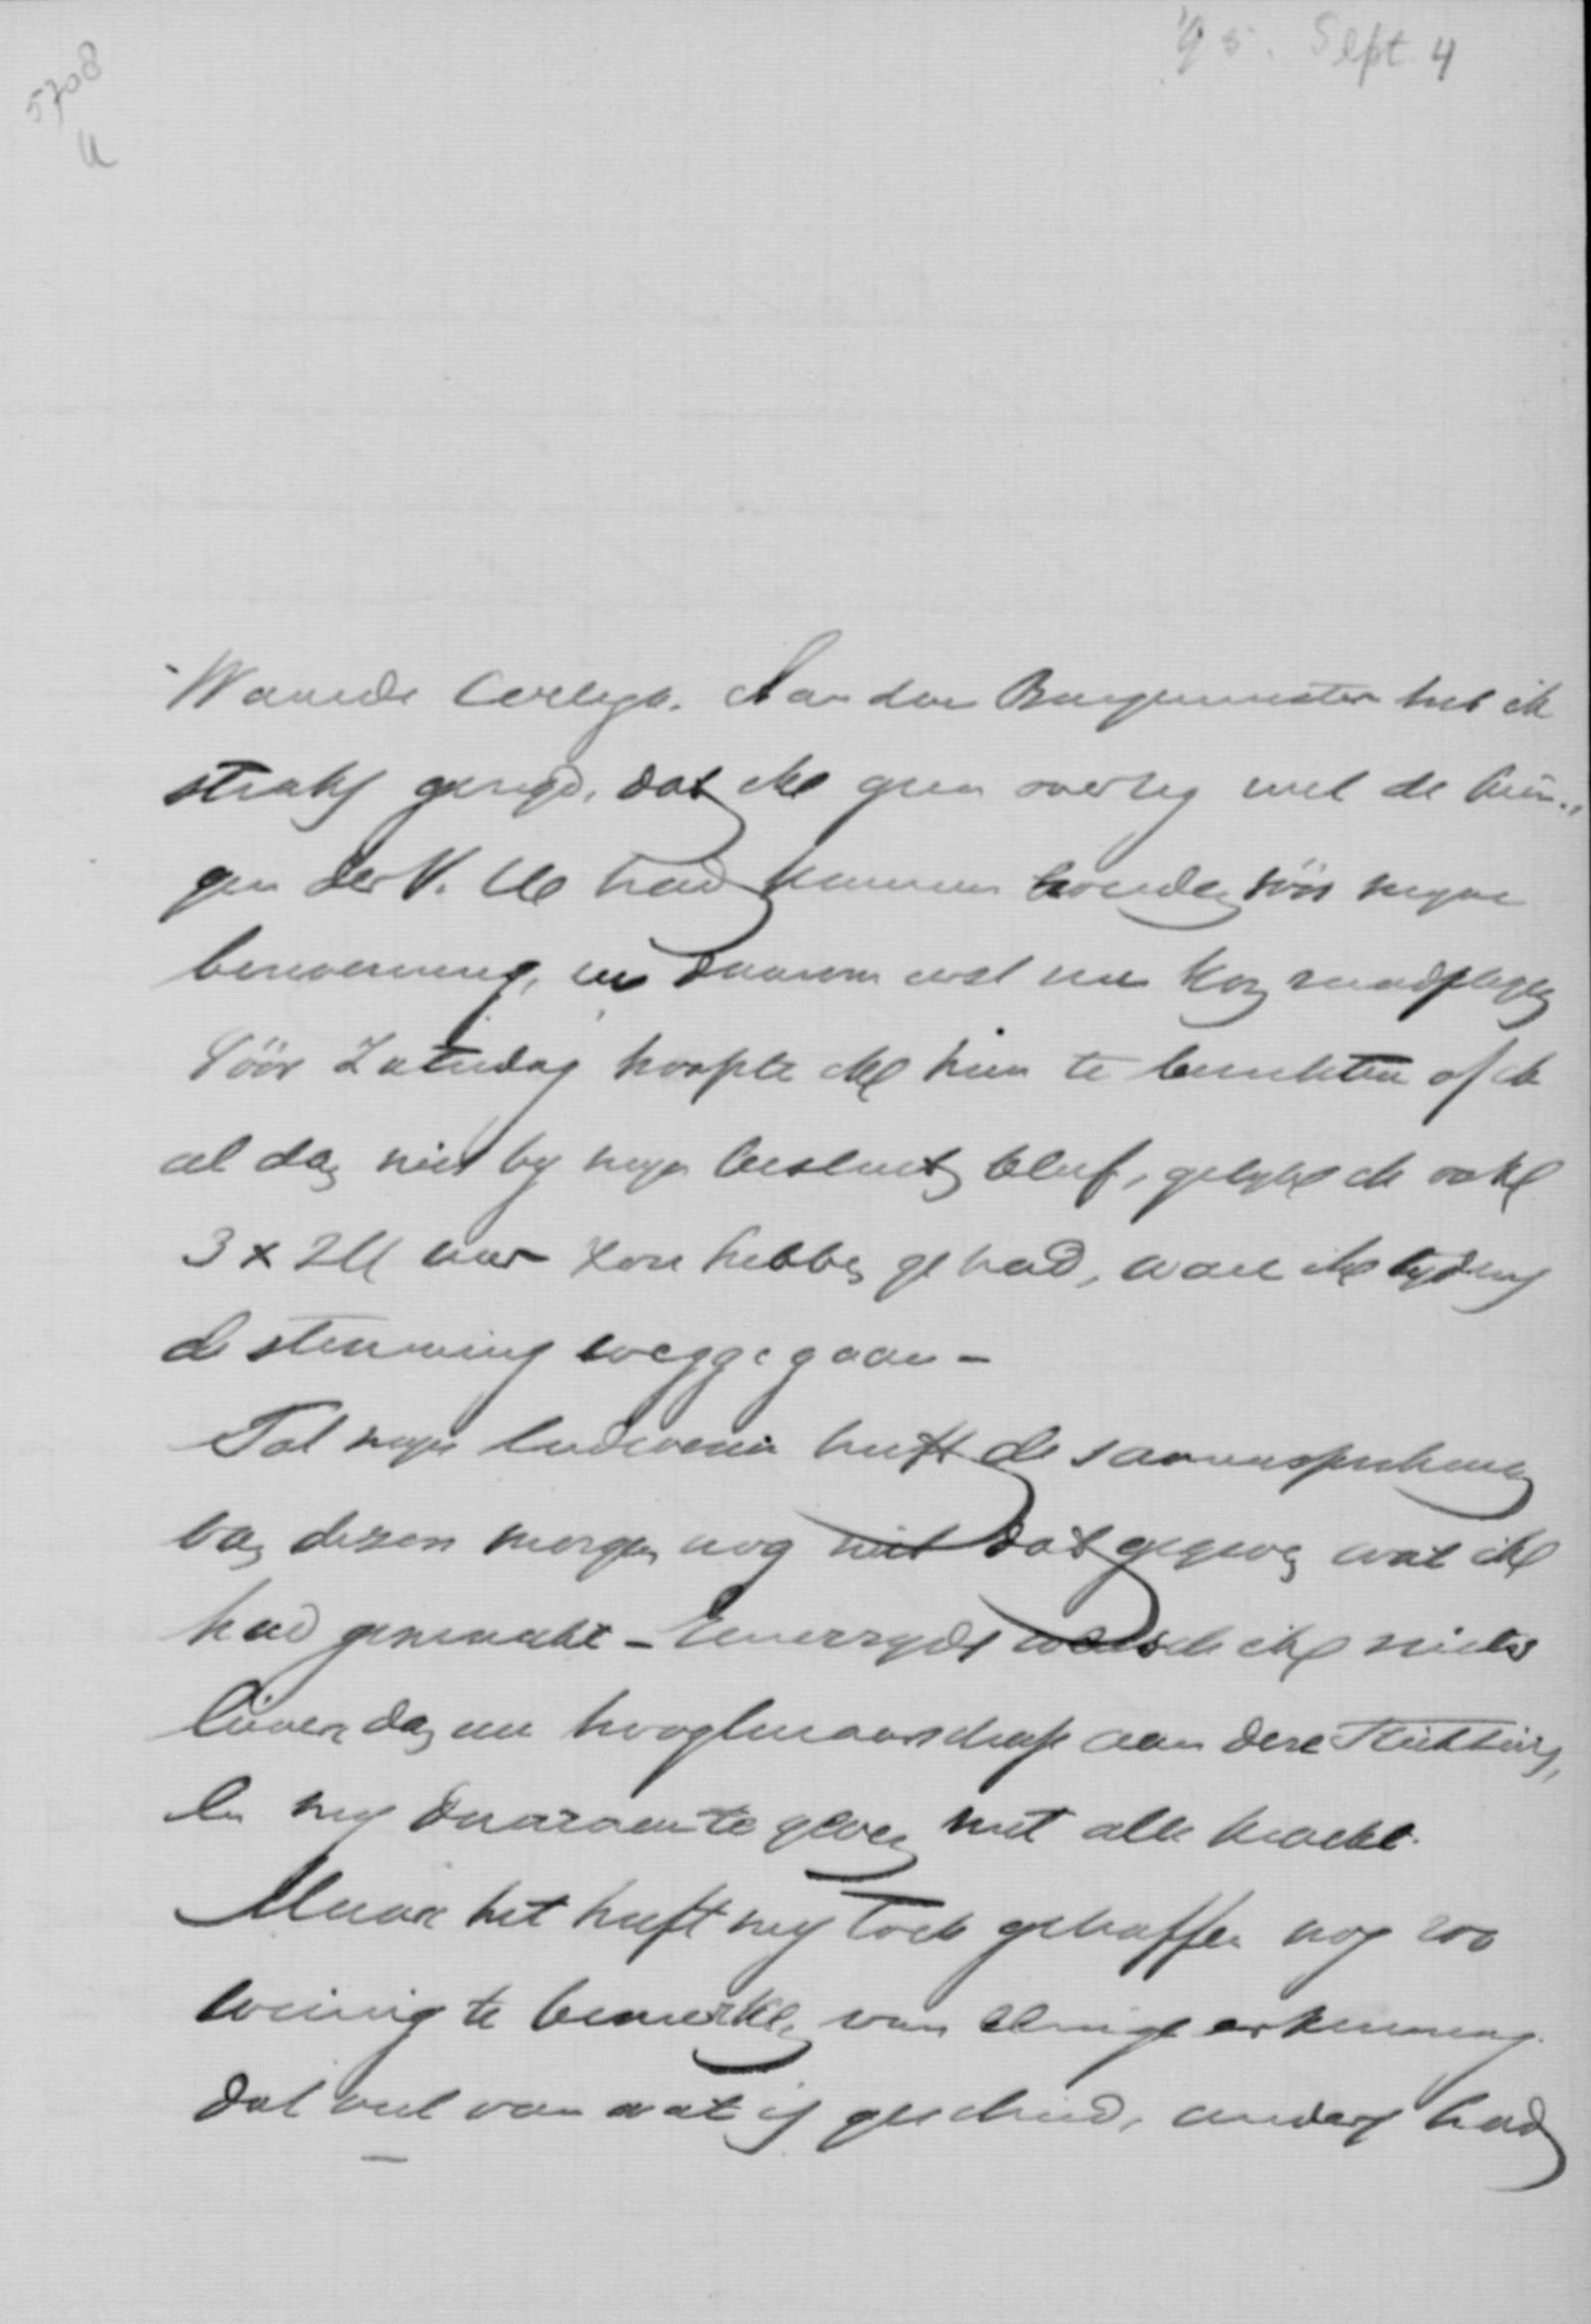 '95. Sept. 4
5708
U
Waarde Collega. Aan den Burgemeester heb ik
straks gezegd, dat ik geen overleg met de
gen der V. U had kunnen houden vóór mijne
benoeming, en daarom eerst nu kon raadplegen
Vóór Zaterdag hoopte ik hem te berichten of ik
al dan niet bij mijn besluit bleef, gelijk ik ook
3 x 24 uur kon hebben gehad, ware ik tijdens
de stemming weggegaan -
Tot mijn leedwezen heeft de samenspreking
van dezen morgen nog niet dat gegeven wat ik
had gewenscht - Eenerzyds wensch ik niets
liever dan een hoogleeraarschap aan deze Stichting,
en mij daaraan te geven met alle kracht.
Maar het heeft mij toch getroffen nog zoo
weinig te bemerken van eenige erkenning
dat veel van wat is geschied, anders had